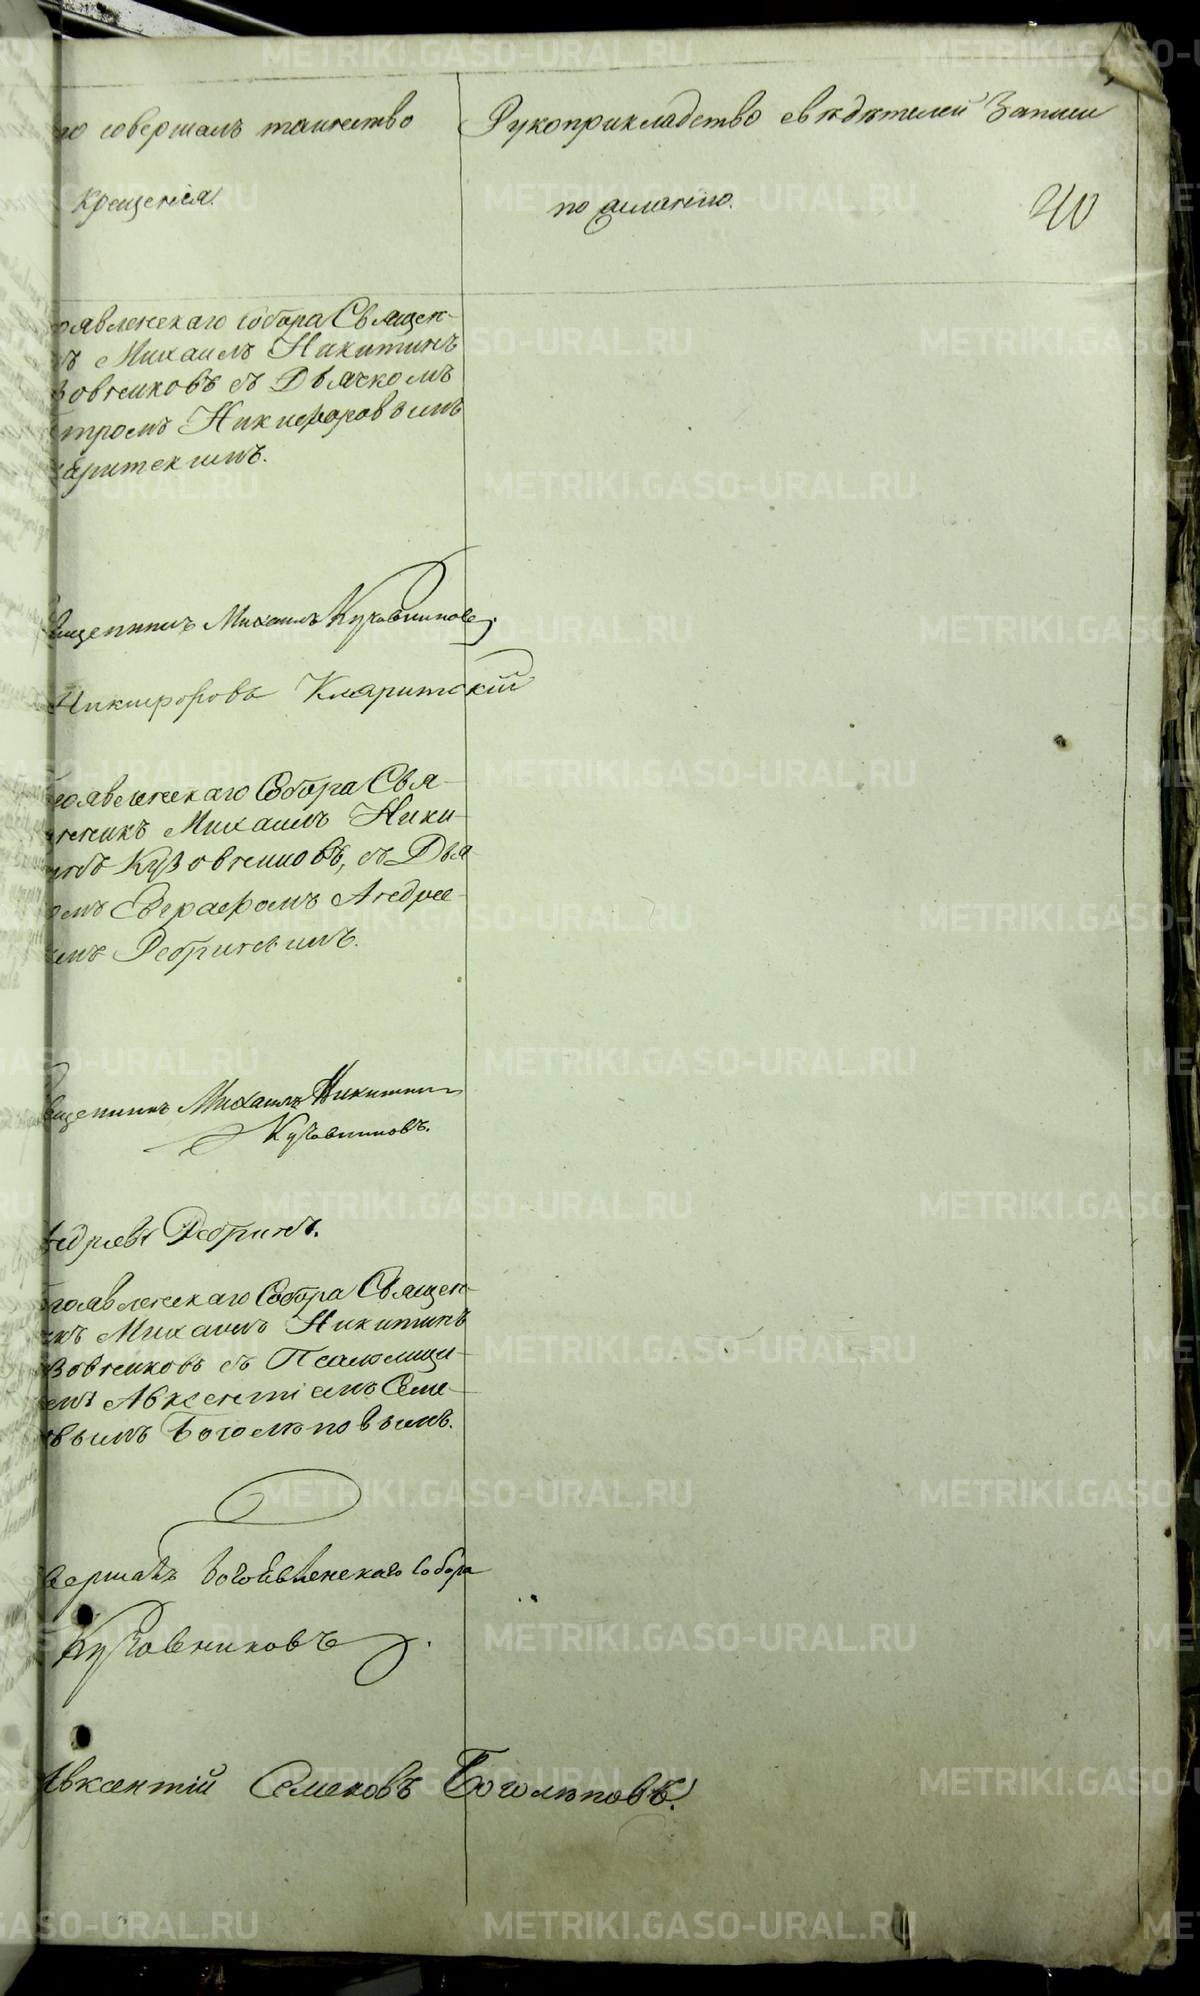 совершалъ таинство
крещенія.
Рукоприкладство свидѣтелей Записи
по желанію.
40
оявленскаго Собора Священ-
ъ Михаилъ Никитинъ
зовниковъ съ Дьячкомъ
етромъ Никифоровымъ
ларитскимъ.
вященникъ Михаилъ Кузовниковъ.
Никифоровъ Кларитскій
гоявленскаго Собора Свя-
щенникъ Михаилъ Ники-
инъ Кузовниковъ, съ Дья-
омъ Евграфомъ Андрее-
ымъ Ребринымъ.
вященникъ Михаилъ Никитинъ
Кузовниковъ.
ндреевъ Ребринъ.
гоявленскаго Собора Священ-
икъ Михаилъ Никитинъ
зовниковъ съ Псаломщи-
омъ Авксентіемъ Семе-
овымъ Боголѣповымъ.
вершалъ Богоявленскаго Собора
Кузовниковъ.
Авксентій Семеновъ Боголѣповъ.
METRIKI.GASO-URAL.RU